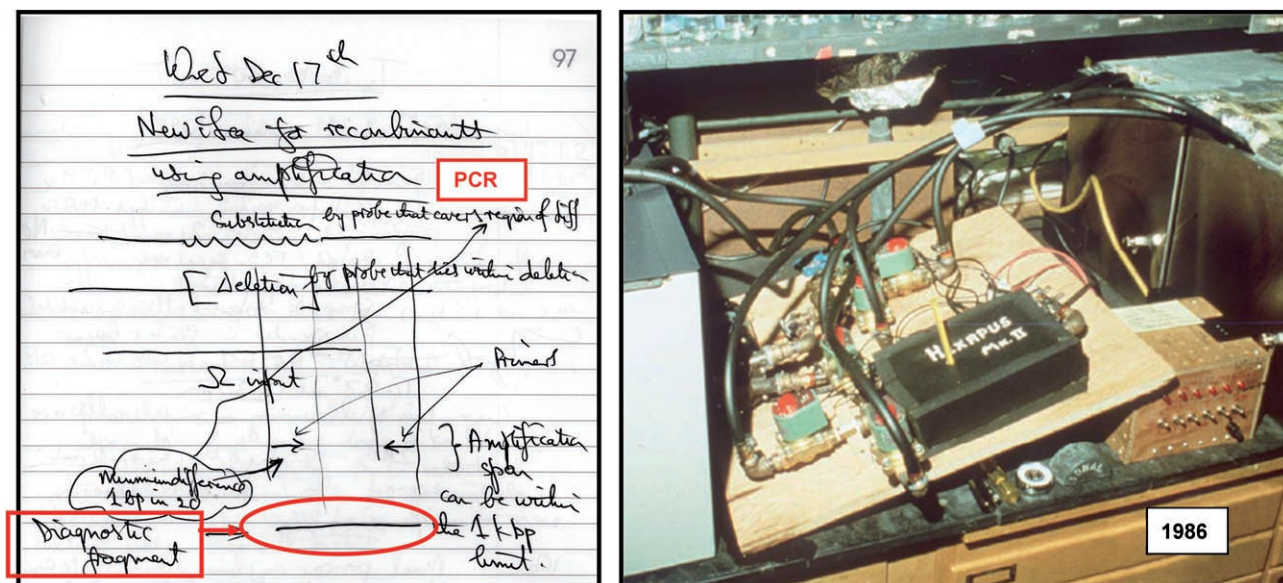 97
Wed Dec 17th
New idea for recombinants
using amplification
PCR
Substitution by probe that covers region of diff
[ Deletion ] by probe that lies within deletion
Ω input
Primers
} Amplification
span
can be within
the 1 kbp
limit.
Minimum difference
1 bp in 20
Diagnostic
fragment
HEXAPUS
MK. II
1986